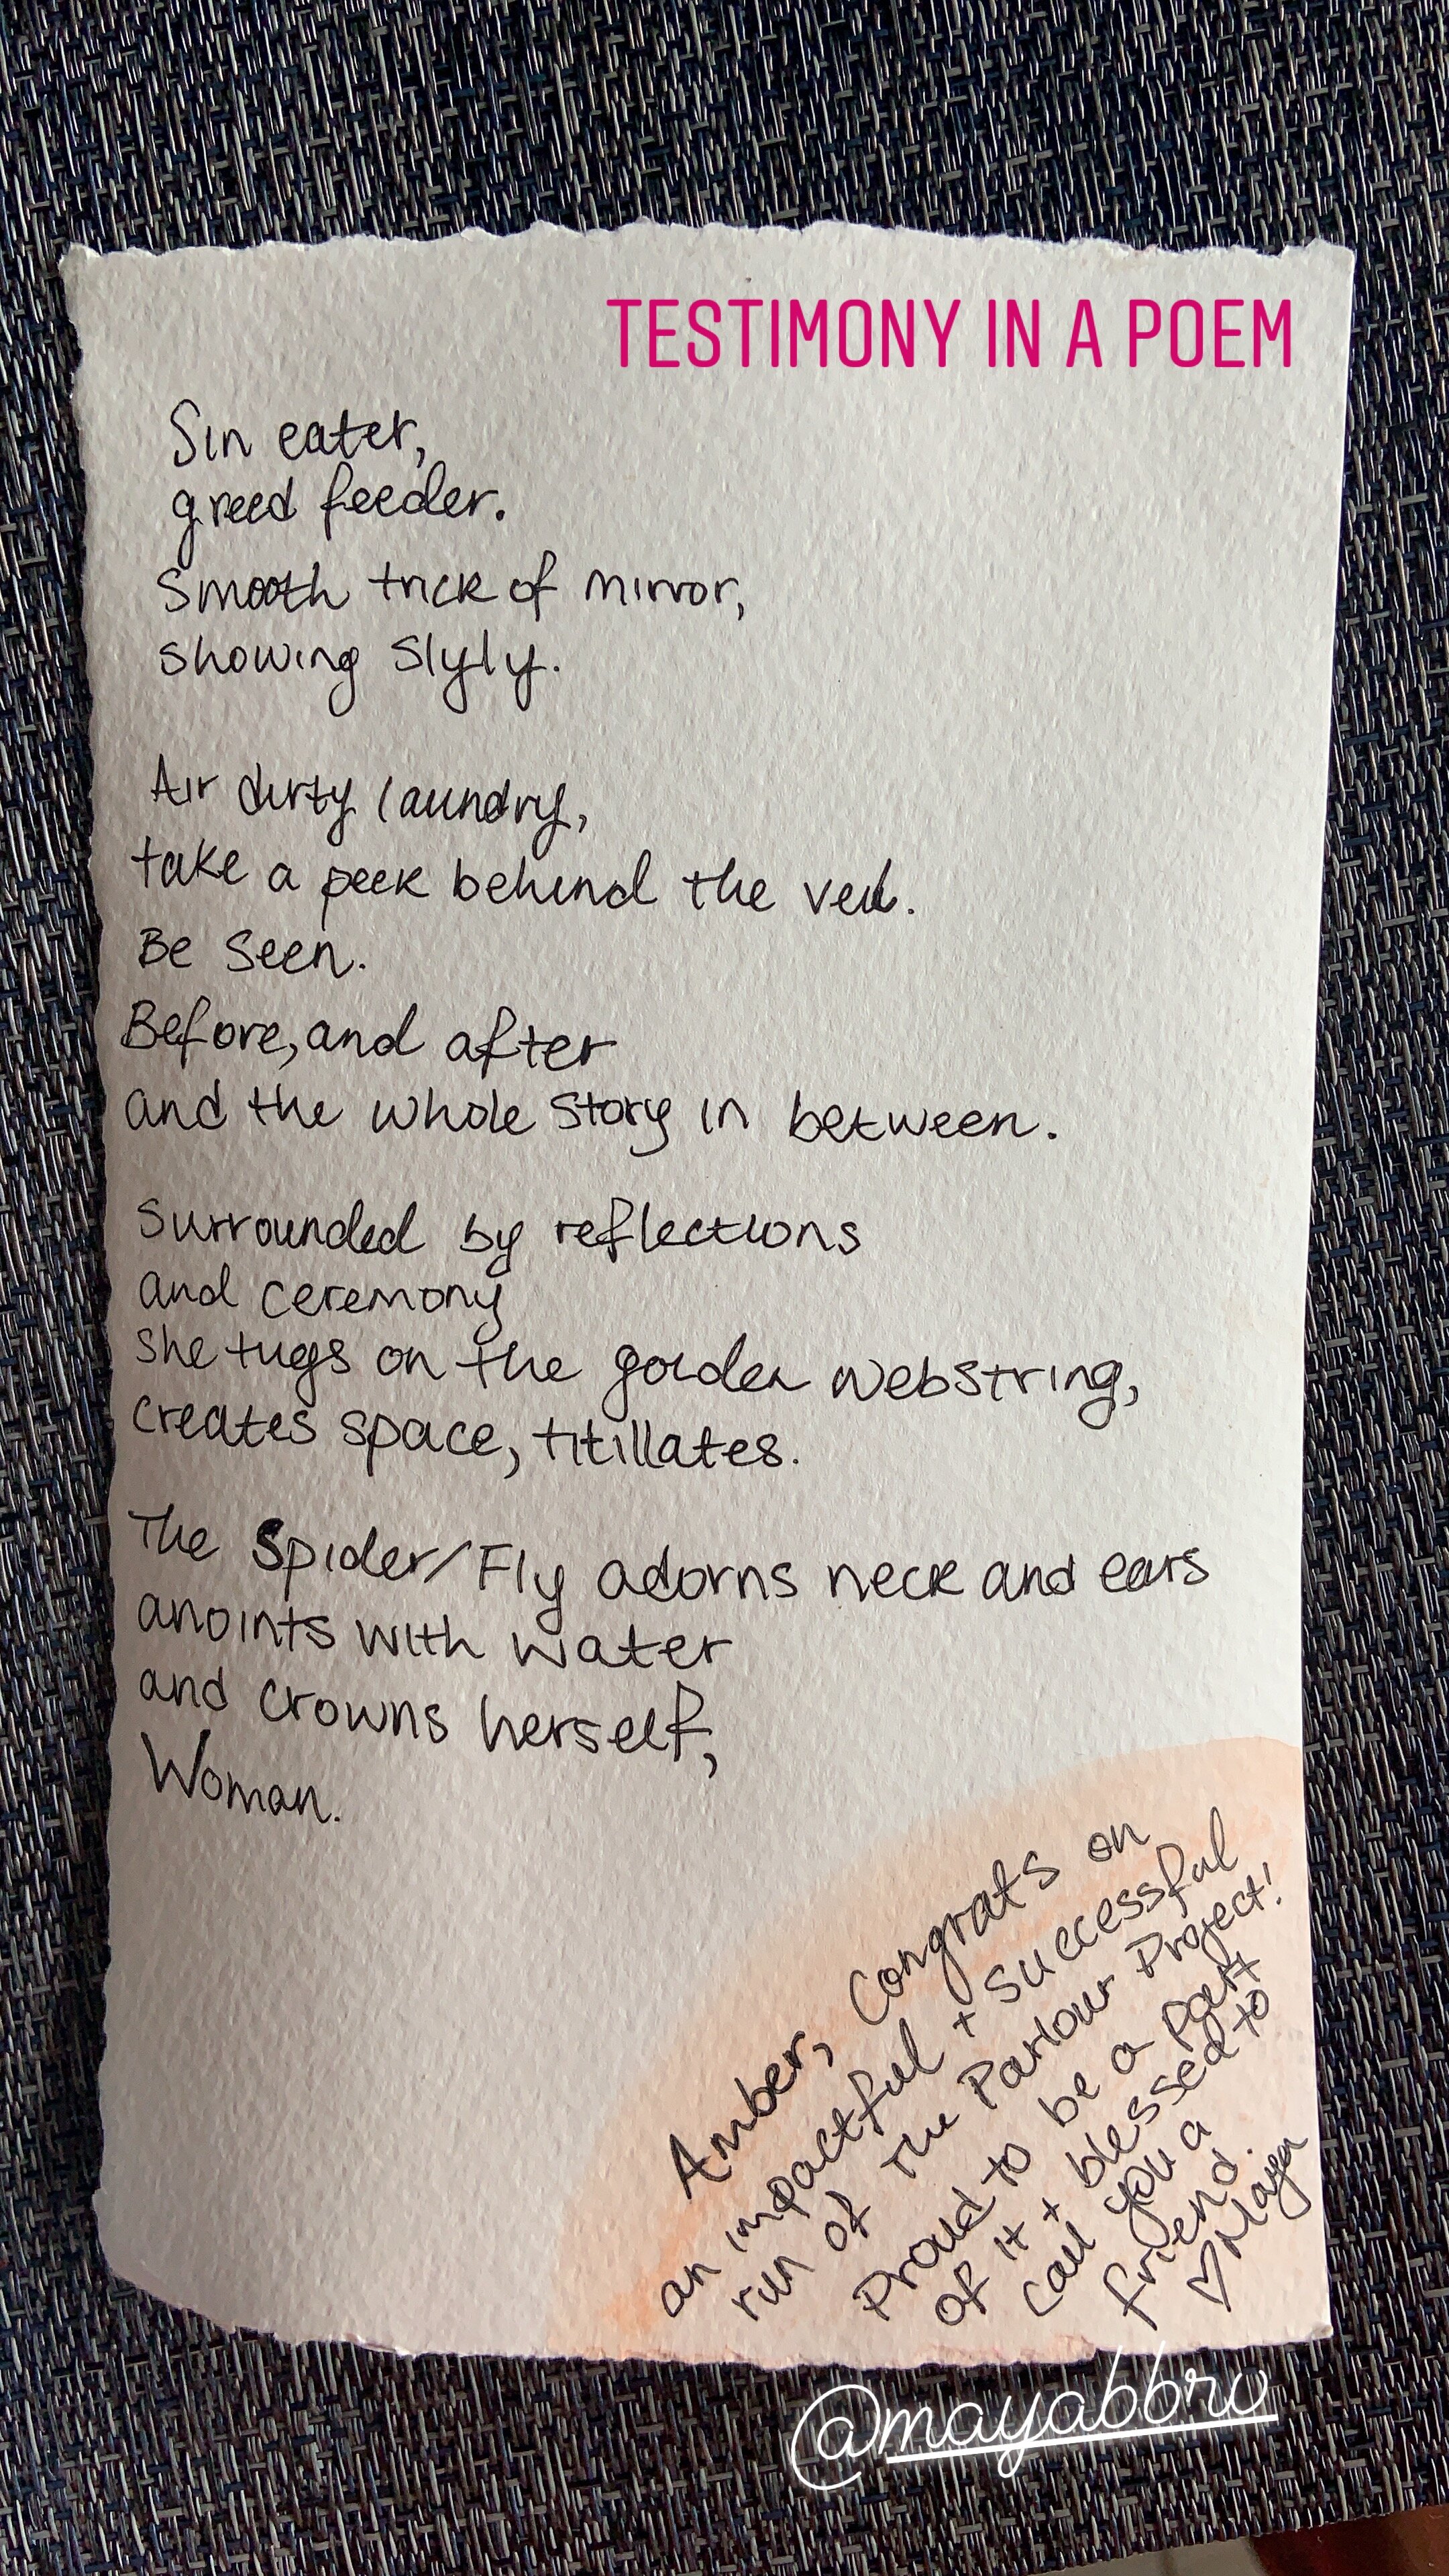 TESTIMONY IN A POEM
Sin eater,
greed feeder.
Smooth trick of mirror,
showing slyly.
Air dirty laundry,
take a peek behind the veil.
Be seen.
Before, and after
and the whole story in between.
Surrounded by reflections
and ceremony
she tugs on the golden webstring,
creates space, titillates.
The Spider/Fly adorns neck and ears
anoints with water
and crowns herself,
Woman.
Amber, Congrats on
an impactful + successful
run of The Parlour Project!
Proud to be a part
of it + blessed to
call you a
friend.
♡ Maya
@mayabbro